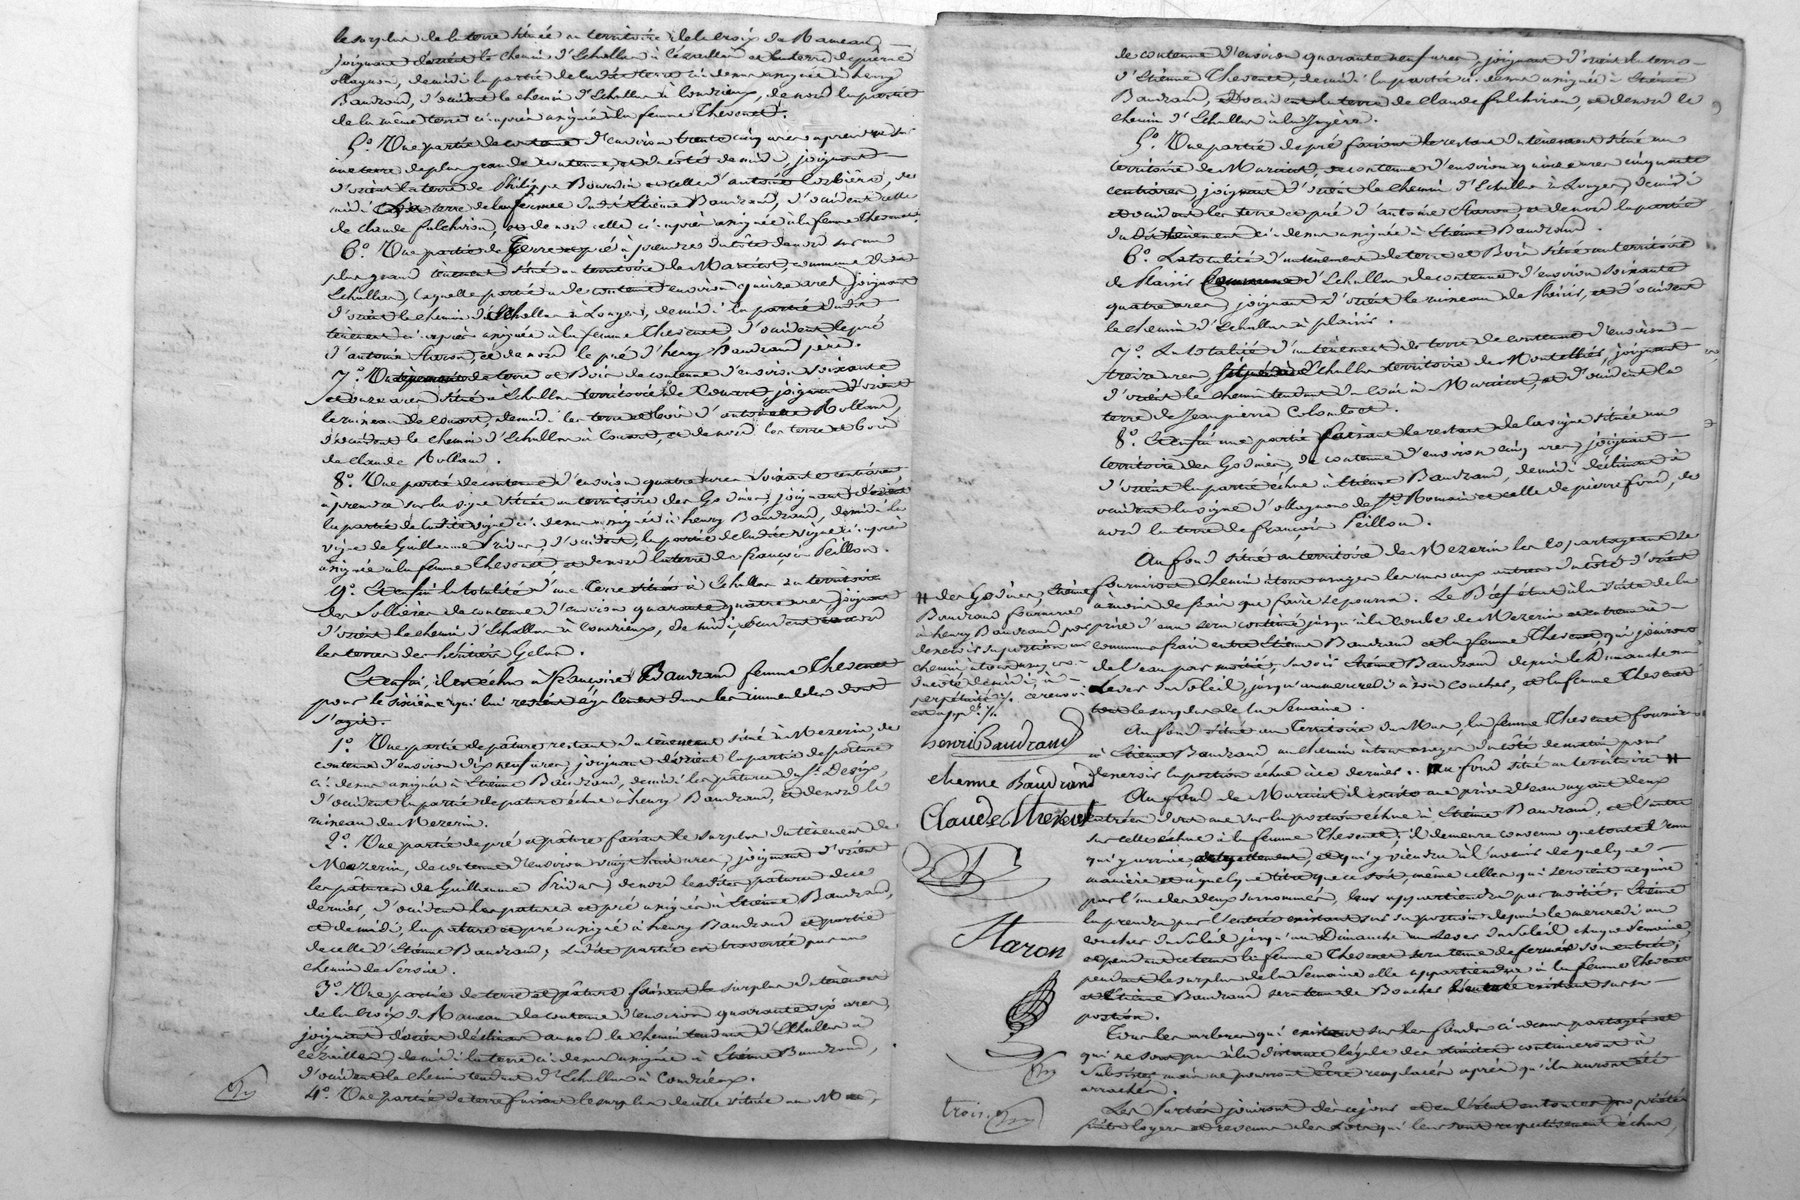 le surplus de la terre située au territoire de la Croix du Rameau
joignant d'orient le chemin d'Echallas à et la terre de pierre
ollagnon, de midi la partie de la dite terre ci-dessus assignée à henry
Baudrand, d'occident le chemin d'Echallas à Condrieux, de nord la partie
de la même terre ci-après assignée à la femme Thevenet.
5.° Une partie de contenue d'environ trente cinq ares à prendre sur
une terre de plus grande contenue, et du côté de midi, joignant
d'orient la terre de Philippe Bourdin et celle d'antoine Corbière, de
midi terre de la femme du dit Etienne Baudrand, d'occident celle
de claude fulchiron, et de nord celle ci-après assignée à la femme Thevenet.
6.° Une partie de Terre et pré à prendre du côté de nord sur un
plus grand tenement situé au territoire de Maricot, commune du dit
Echallas, laquelle partie a de contenue environ quinze ares, joignant
d'orient le chemin d'Echallas à Longes, de midi la partie du dit
tènement ci-après assignée à la femme Thevenet, d'occident le pré
d'antoine Staron, et de nord le pré d'henry Baudrand père.
7.° Un tènement de terre et Bois de contenue d'environ soixante
et onze ares situé à Echallas territoire de Couart, joignant d'orient
le ruisseau de Couart, de midi les terre et bois d'antoinette Rolland,
d'occident le chemin d'Echallas à Couart, et de nord les terre et bois
de claude Rolland.
8.° Une partie de contenue d'environ quatre ares soixante centiares,
à prendre sur la vigne située au territoire des Godiner, joignant d'orient
la partie de la dite vigne ci-dessus assignée à henry Baudrand, de midi la
vigne de Guillaume Pridas, d'occident, la partie de la dite vigne ci-après
assignée à la femme Thevenet, et de nord la terre de françois Peillon.
9.° Et enfin la totalité d'une Terre située à Echallas au territoire
des Sollières de contenue d'environ quarante quatre ares, joignant
d'orient le chemin d'Echallas à Condrieux, de midi, occident et nord
les terres des héritiers Gelas.
Et enfin, il est échu à françoise Baudrand femme Thevenet
pour le sixième qui lui revient également dans les immeubles dont
s'agit.
1.° Une partie de pâture restant du tènement situé à Mezerin, de
contenue d'environ dix neuf ares, joignant d'orient la partie de pâture
ci-dessus assignée à Etienne Baudrand, de midi les pâtures du S.r Desgix,
d'occident la partie de pature échue à henry Baudrand, et de nord le
ruisseau de Mezerin.
2.° Une partie de pré et pâture faisant le surplus du tènement de
Mezerin, de contenue d'environ vingt huit ares, joignant d'orient
les pâtures de Guillaume Pridas, de nord les dites pâtures de ce
dernier, d'occident les patures et pré assignés à Etienne Baudrand,
et de midi, la pature et pré assignés à henry Baudrand et partie
de celle d'Etienne Baudrand; La dite partie est traversée par un
chemin de service.
3.° Une partie de terre et pâture faisant le surplus du tènement
de la Croix du Rameau de contenue d'environ quarante six ares,
joignant d'orient déclinant au nord le chemin tendant d'Echallas à
, de midi la terre ci-dessus assignée à Etienne Baudrand,
d'occident le chemin tendant d'Echallas à Condrieux.
4.° Une partie de terre faisant le surplus de celle située au M
de contenue d'environ quarante neuf ares, joignant d'orient la terre
d'Etienne Thevenet, de midi la partie ci-dessus assignée à Etienne
Baudrand, d'occident la terre de claude fulchiron, et de nord le
chemin d'Echallas à la
5.° Une partie de pré faisant le restant du tènement situé au
territoire de Maricot, de contenue d'environ quinze ares cinquante
centiares, joignant d'orient le chemin d'Echallas à Longes, de midi
et occident les terre et pré d'antoine Staron, et de nord la partie
du dit tènement ci-dessus assignée à Etienne Baudrand.
6.° La totalité d'un tènement de terre et Bois situé au territoire
de Plaisis Commune d'Echallas de contenue d'environ soixante
quatre ares, joignant d'orient le ruisseau de Plaisis, et d'occident
le chemin d'Echallas à plaisis.
7.° La totalité d'un tènement de terre de contenue d'environ
treize ares situé à Echallas territoire de Montelhier, joignant
d'orient le chemin tendant du à Maricot, et d'occident la
terre de Jean pierre Colombet.
8.° Et enfin une partie faisant le restant de la vigne située au
territoire des Godiner, de contenue d'environ cinq ares, joignant
d'orient la partie échue à Etienne Baudrand, de midi déclinant à
occident la vigne d'ollagnon de S.t Romain et celle de pierre fond, de
nord la terre de françois Peillon.
Au fond situé au territoire de Mezerin les copartageans se
fourniront chemin à tous usages les uns aux autres du côté d'orient
à moins de frais que faire se pourra. Le Bief étant à la suite de la
prise d'eau sera contenu jusqu'à la courbe de Mezerin et entretenu à
communs frais entre Etienne Baudrand et la femme Thevenet, qui jouiront
de l'eau par moitié, savoir Etienne Baudrand depuis le Dimanche au
lever du Soleil, jusqu'au mercredi à son coucher, et la femme Thevenet
tout le surplus de la Semaine.
Au fond situé au Territoire du Mas, la femme Thevenet fournira
à Etienne Baudrand un chemin à tous usages du côté de matin pour
desservir la portion échue à ce dernier. Au fond situé au territoire #
# des Godiner, Etienne
Baudrand fournira
à henry Baudrand pour
desservir sa portion un
chemin à tous usages
du côté de midi, à
perpétuité ./. ce renvoi
est app.é ./.
henri Baudrand
etienne Baudrand
Claude thevenet
Staron
Au fond de Maricot il existe une prise d'eau ayant deux
entrées dont une sur la portion échue à Etienne Baudrand, et l'autre
sur celle échue à la femme Thevenet; il demeure convenu que toute l'eau
qui y arrive actuellement, et qui y viendra à l'avenir de quelque
manière et à quelque titre que ce soit, même celles qui seroient acquise
par l'un des deux surnommés, leur appartiendra par moitié. Etienne
la prendra par l'entrée existant sur sa portion depuis le mercredi au
coucher du Soleil jusqu'au Dimanche au lever du Soleil chaque semaine,
et pendant ce tems la femme Thevenet sera tenue de fermer son entrée;
pendant le surplus de la Semaine elle appartiendra à la femme Thevenet
et Etienne Baudrand sera tenu de Boucher l'entrée existant sur sa
portion.
Tous les arbres qui existent sur les fonds ci-dessus partagés et
qui ne sont pas à la distance légale des limites continueront à
subsister mais ne pourront être remplacés après qu'ils auront été
arrachés.
Les Parties jouiront dès ce jour et en l'état en toutes propriétés
fruits loyers et revenus des Lots qui leur sont respectivement échus,
trois.